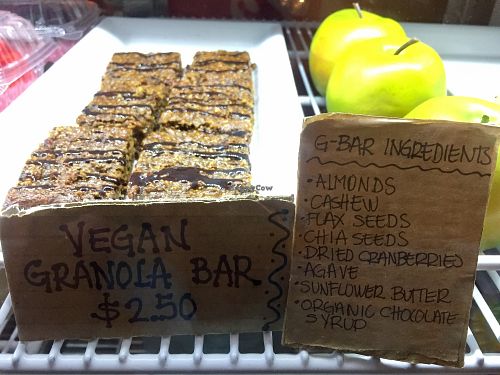 VEGAN
GRANOLA BAR
$2.50
G-BAR INGREDIENTS
• ALMONDS
• CASHEW
• FLAX SEEDS
• CHIA SEEDS
• DRIED CRANBERRIES
• AGAVE
• SUNFLOWER BUTTER
• ORGANIC CHOCOLATE
SYRUP